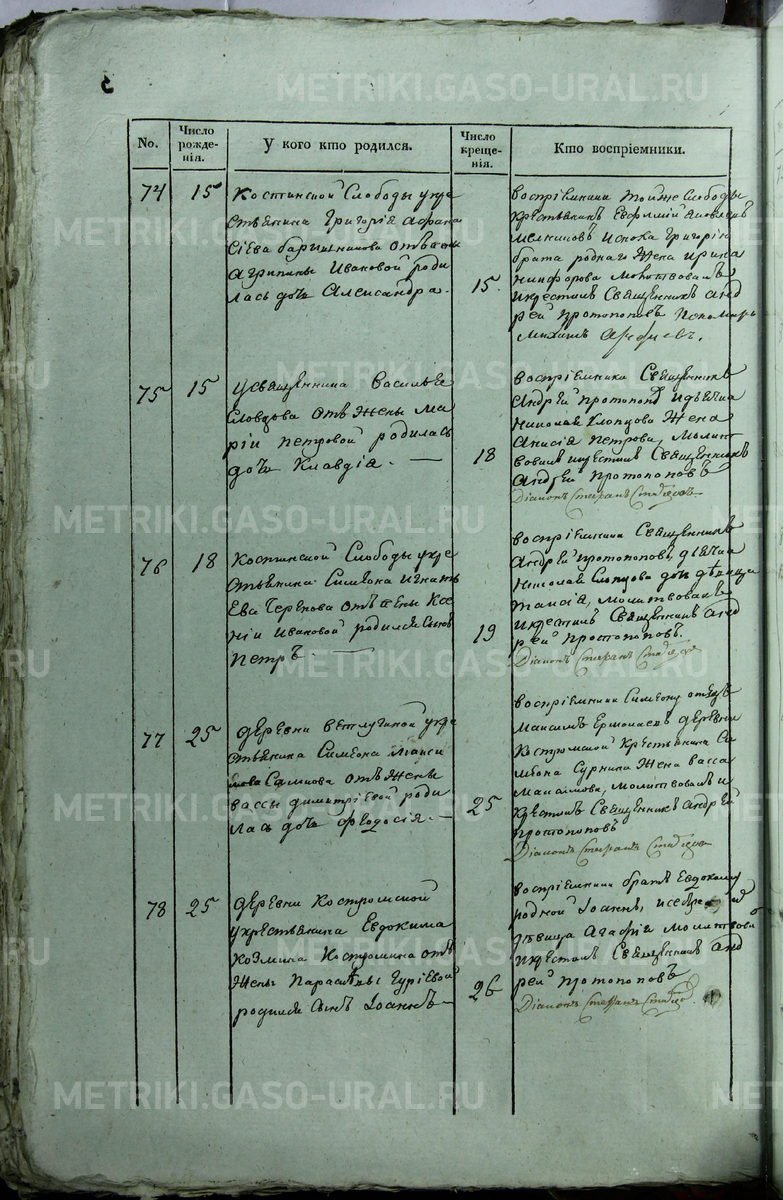 METRIKI.GASO-URAL.RU
No.
Число рожденія.
У кого кто родился.
Число крещенія.
Кто воспріемники.
74
15
Костинской Слободы укре
стьянина Григорія Афана
сіева отъ жены
Агрипины Ивановой роди
лась дочь Александра.
15
воспріемники той же Слободы
Крестьянинъ Евфимій Яковлевъ
Мелниковъ Григорія
брата роднаго Жена Ирина
Никифорова молитвовалъ
икрестилъ Священникъ Анд
рей Протопоповъ Пономарь
75
15
Усвященника Василья
Словцова отъ Жены Ма
ріи Петровой родилась
дочь Клавдія.
18
воспріемники Священникъ
Андрей Протопоповъ идьячка
Николая Жена
Анисія Петрова, молит
вовалъ икрестилъ Священникъ
Андрей Протопоповъ
Діаконъ Стефанъ
76
18
Костинской Слободы укре
стьянина Симеона Игнать
ева отъ жены Ксе
ніи Ивановой родился сынъ
Петръ.
19
воспріемники Священникъ
Андрей Протопоповъ, дьячка
Николая дочь дѣвица
Таисія, молитвовалъ
икрестилъ Священникъ Анд
рей Протопоповъ.
Діаконъ Стефанъ
77
25
деревни Ветлугиной укре
стьянина Симеона Макси
мова отъ жены
Вассы Димитріевой роди
лась дочь Феодосія.
25
воспріемники Симеону отецъ
Максимъ деревни
Костромской Крестьянина Си
меона Жена Васса
Максимова, молитвовалъ и
крестилъ Священникъ Андрей
Протопоповъ
Діаконъ Стефанъ
78
25
деревни Костромской
укрестьянина Евдокима
Козмина Костромина отъ
жены Парасковьи Гуріевой
родился сынъ Іоаннъ
26
воспріемники братъ Евдокиму
родной Іоаннъ, исестра
дѣвица Агафія молитвова
икрестилъ Священникъ Анд
рей Протопоповъ
Діаконъ Стефанъ